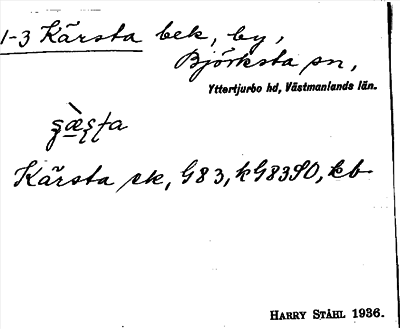 1-3 Kärsta bek, by,
Björksta sn,
Yttertjurbo hd, Västmanlands län.
Kärsta ek, G83, kG83SO, kb
HARRY STÅHL 1936.